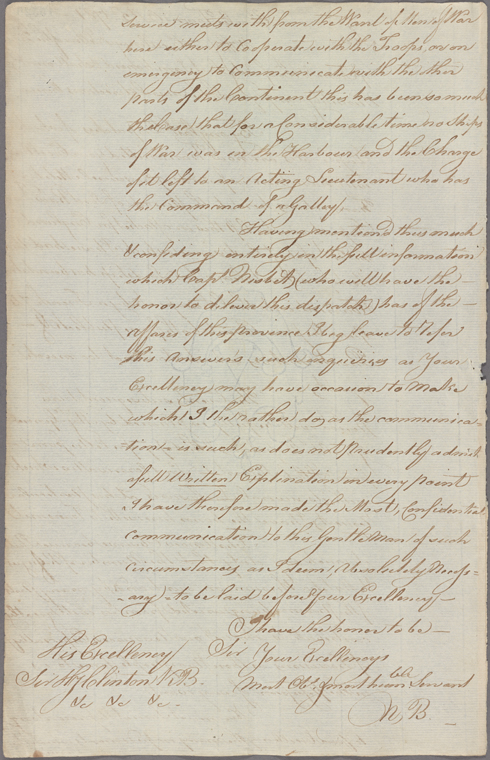 Service meets with from the Want of Men of War
here either to Cooperate with the Troops, or on
emergency to Communicate with the other
parts of the Continent this has been so much
the Case that for a Considerable time no Ships
of War was in the Harbour and the Charge
of it left to an Acting Lieutenant who has
the Command of a Galley.
Having mentiond thus much
& confiding entirely in the full information
which Capt Nisbit (who will have the
honor to deliver this despatch) has of the
affairs of this province I beg leave to Refer
his Answers such inquiries as Your
Excellency may have occasion to Make
which I the rather do, as the communica-
tion is such, as does not prudently admit
a full Written Explination in every point
I have therefore made the Most, Confidential
communication to this Gentleman of such
circumstances, as I deem, Absolutely Necess-
ary to be laid before Your Excellency
I have the honor to be
Sir
Your Excellencys
Most Obt. & most hum ble Servant
N B
His Excellency
Sir Hy Clinton K:B.
&c &c &c